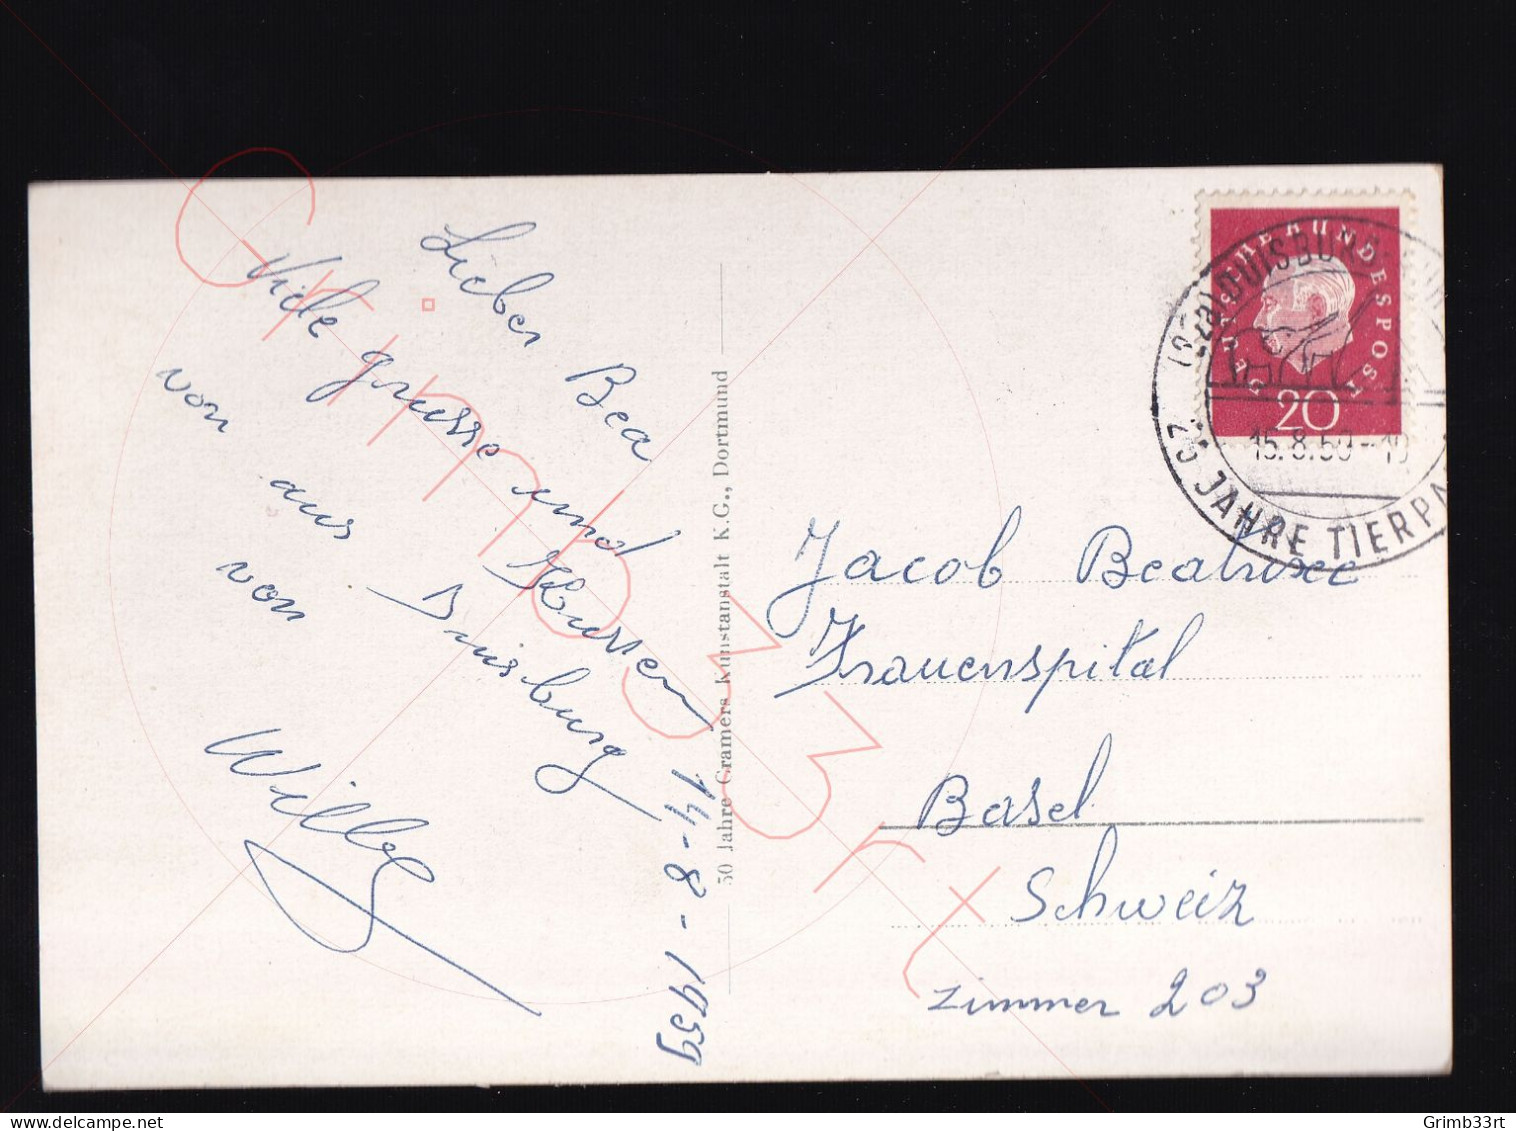 Lieber Bea
Viele grusse und Kussen
von aus Duisburg
von
Willy
14-8-1959
50 Jahre Gramers Kunstanstalt K.G., Dortmund
DEUTSCHE BUNDESPOST
20
DUISBURG
15.8.59-10
25 JAHRE TIERPA
Jacob Beatrice
Frauenspital
Basel
Schweiz
Zimmer 203
Grimb33rt
delcampe.net
Grimb33rt